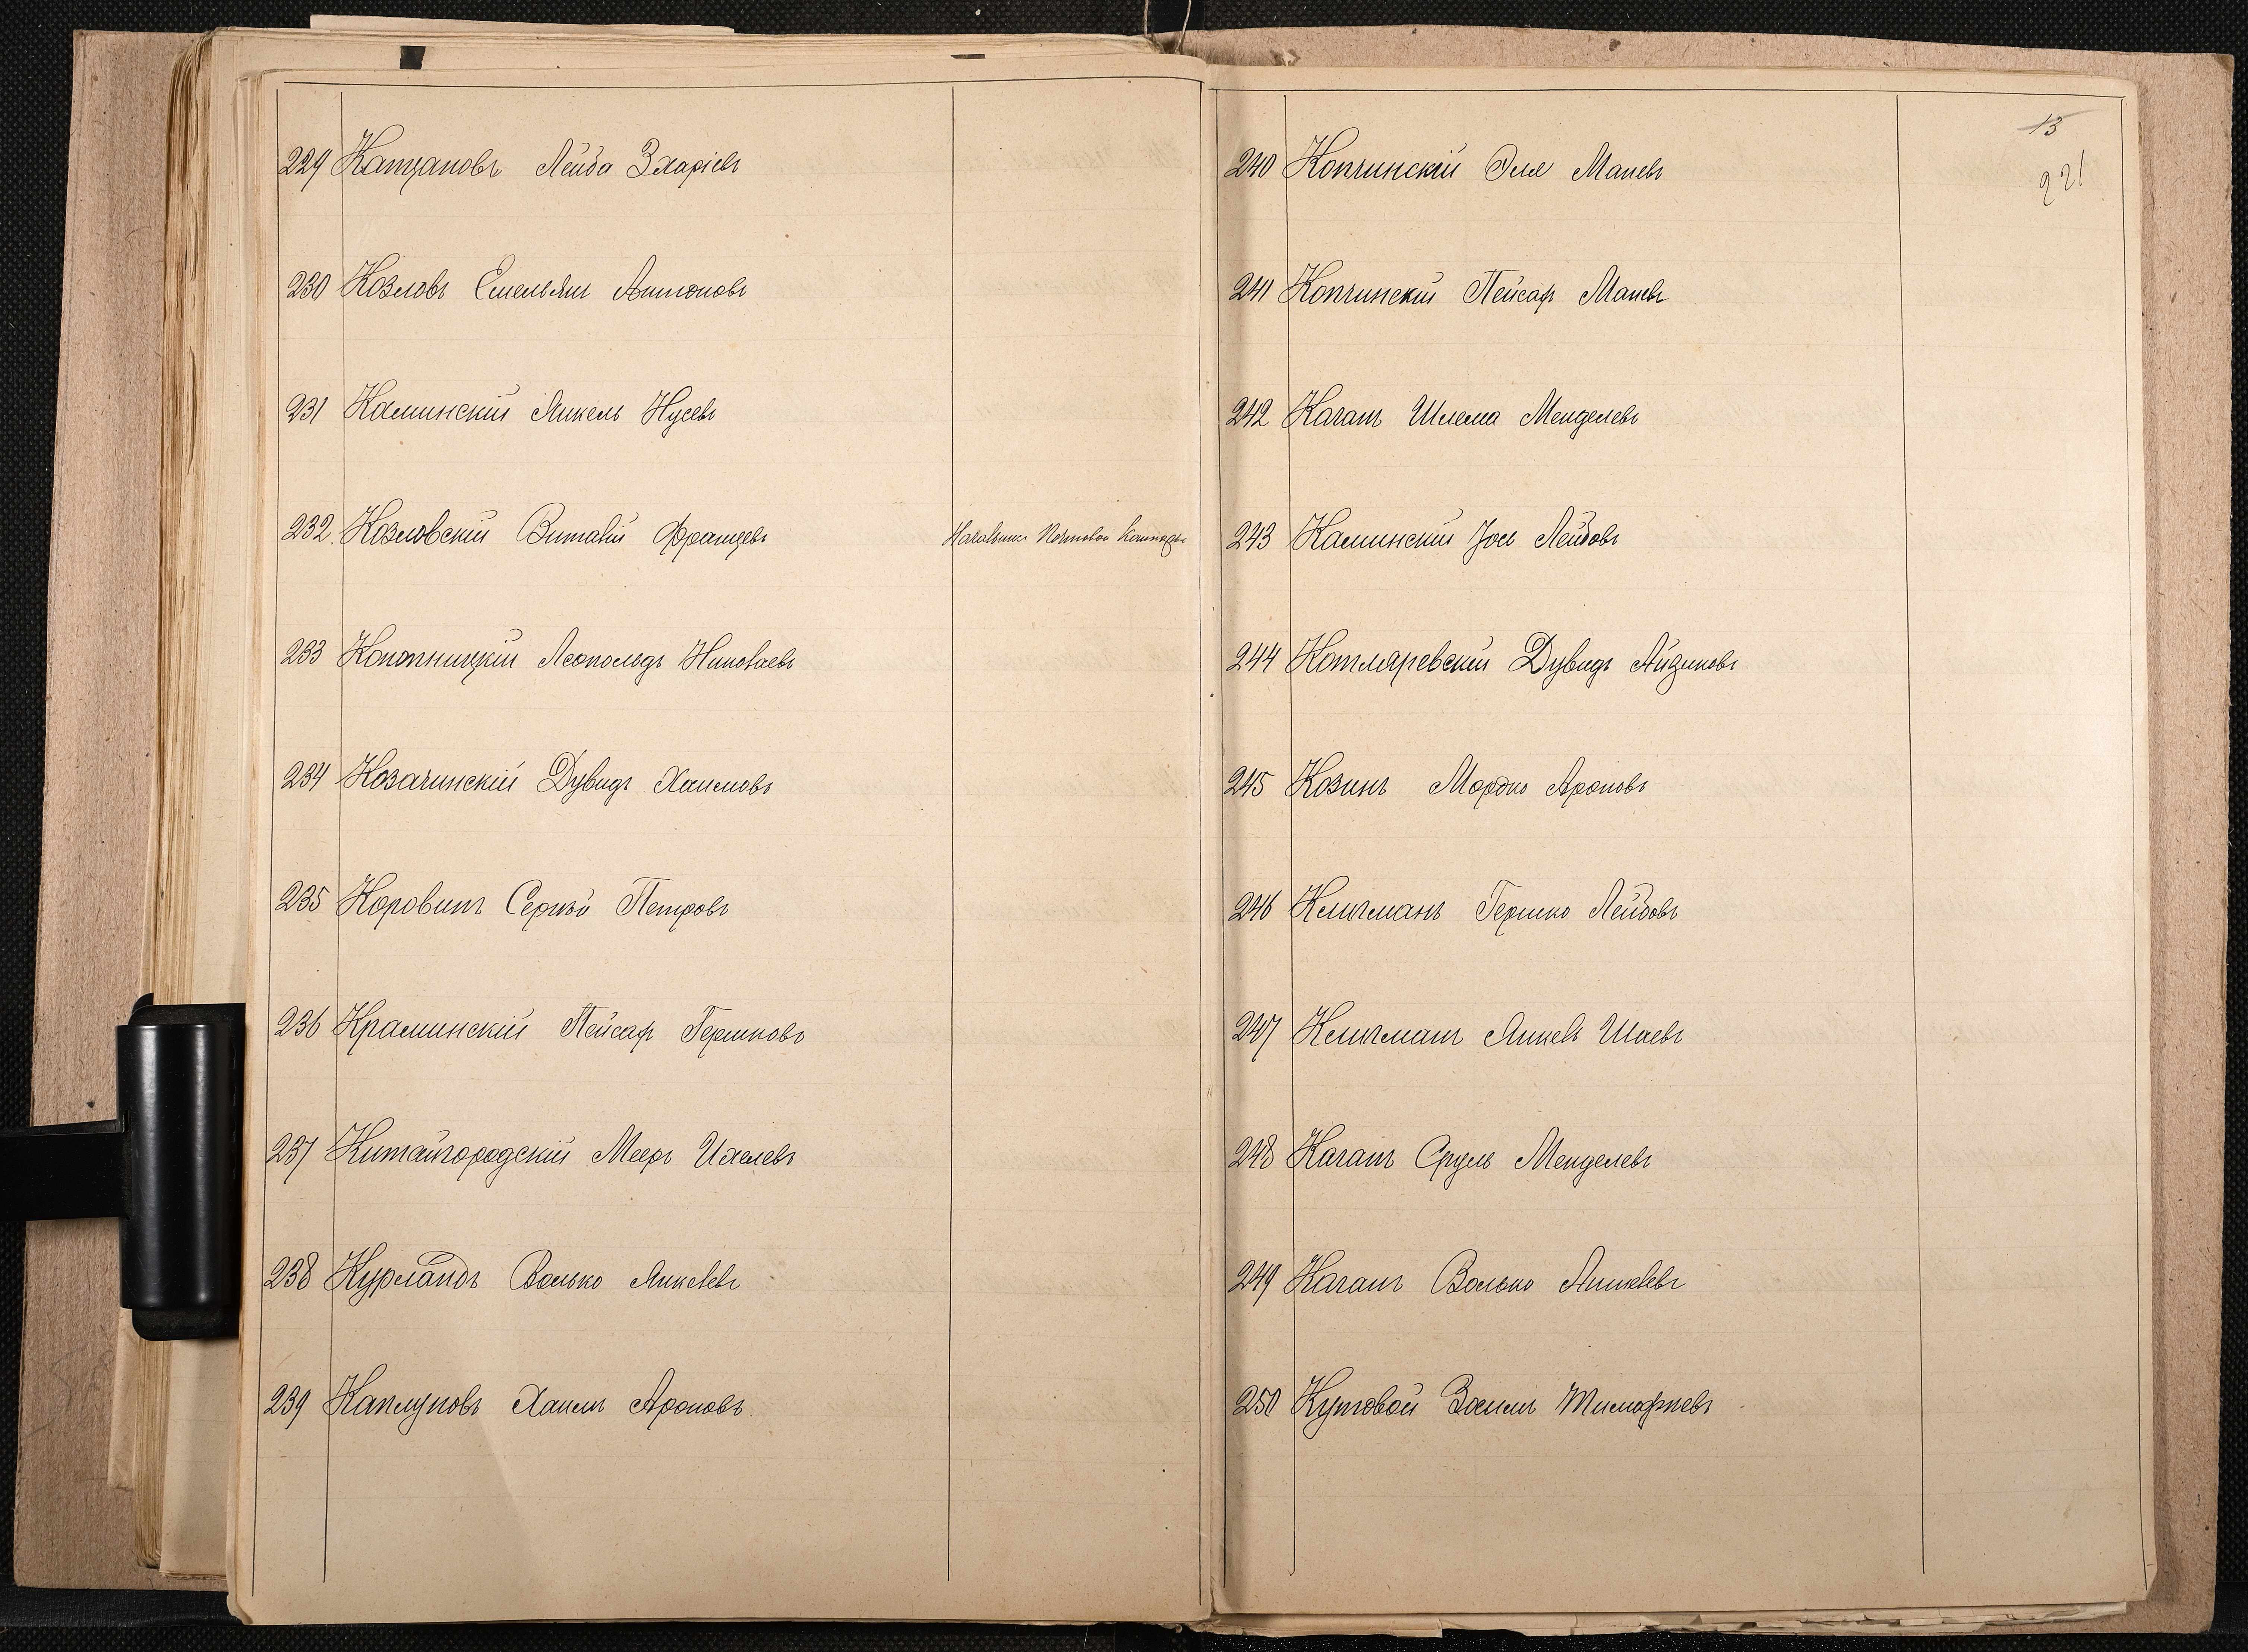 229 Капцановъ Лейба Зхаріевъ
230 Козловъ Емельянъ Антоновъ
231 Каминскій Янкель Нусевъ
232. Козловскій Виталій Францевъ Начальникъ Почтовой Конторы
233 Конопницкій Леопольдъ Николаевъ
234 Козачинскій Дувидъ Хаимовъ
235 Коровинъ Сергѣй Петровъ
236 Краминскій Пейсах Гершковъ
237 Китайгородскій Мееръ Ихелевъ
238 Курландъ Волько Янкелевъ
239 Каплуновъ Хаимъ Ароновъ
13
221
240 Копчинскій Эля Маневъ
241 Копчинскій Пейсах Маневъ
242 Каганъ Шлема Менделевъ
243 Каминскій Іось Лейбовъ
244 Котляревскій Дувидъ Айзиковъ
245 Козинъ Мордко Ароновъ
246 Клигманъ Гершко Лейбовъ
247 Клигманъ Янкель Шаевъ
248 Каганъ Сруль Менделевъ
249 Каганъ Волько Янкелевъ
250 Кутовой Тимофѣевъ